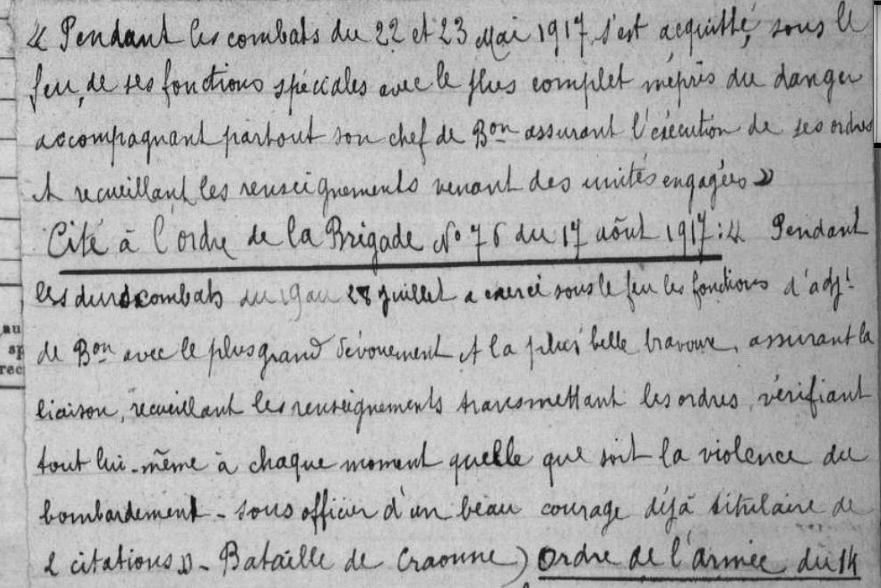 « Pendant les combats du 22 et 23 Mai 1917 s'est acquitté, sous le
feu, de ses fonctions spéciales avec le plus complet mépris du danger
accompagnant partout son chef de Bon assurant l'exécution de ses ordres
et recueillant les renseignements venant des unités engagées »
Cité à l'ordre de la Brigade No 76 du 17 août 1917 : « Pendant
les durs combats du 19 au 28 juillet a exercé sous le feu les fonctions d'adjt
de Bon avec le plus grand dévouement et la plus belle bravoure, assurant la
liaison, recueillant les renseignements transmettant les ordres, vérifiant
tout lui-même à chaque moment quelle que soit la violence du
bombardement - sous officier d'un beau courage déjà titulaire de
2 citations » - Bataille de Craonne) Ordre de l'armée du 14
au
sp
rec